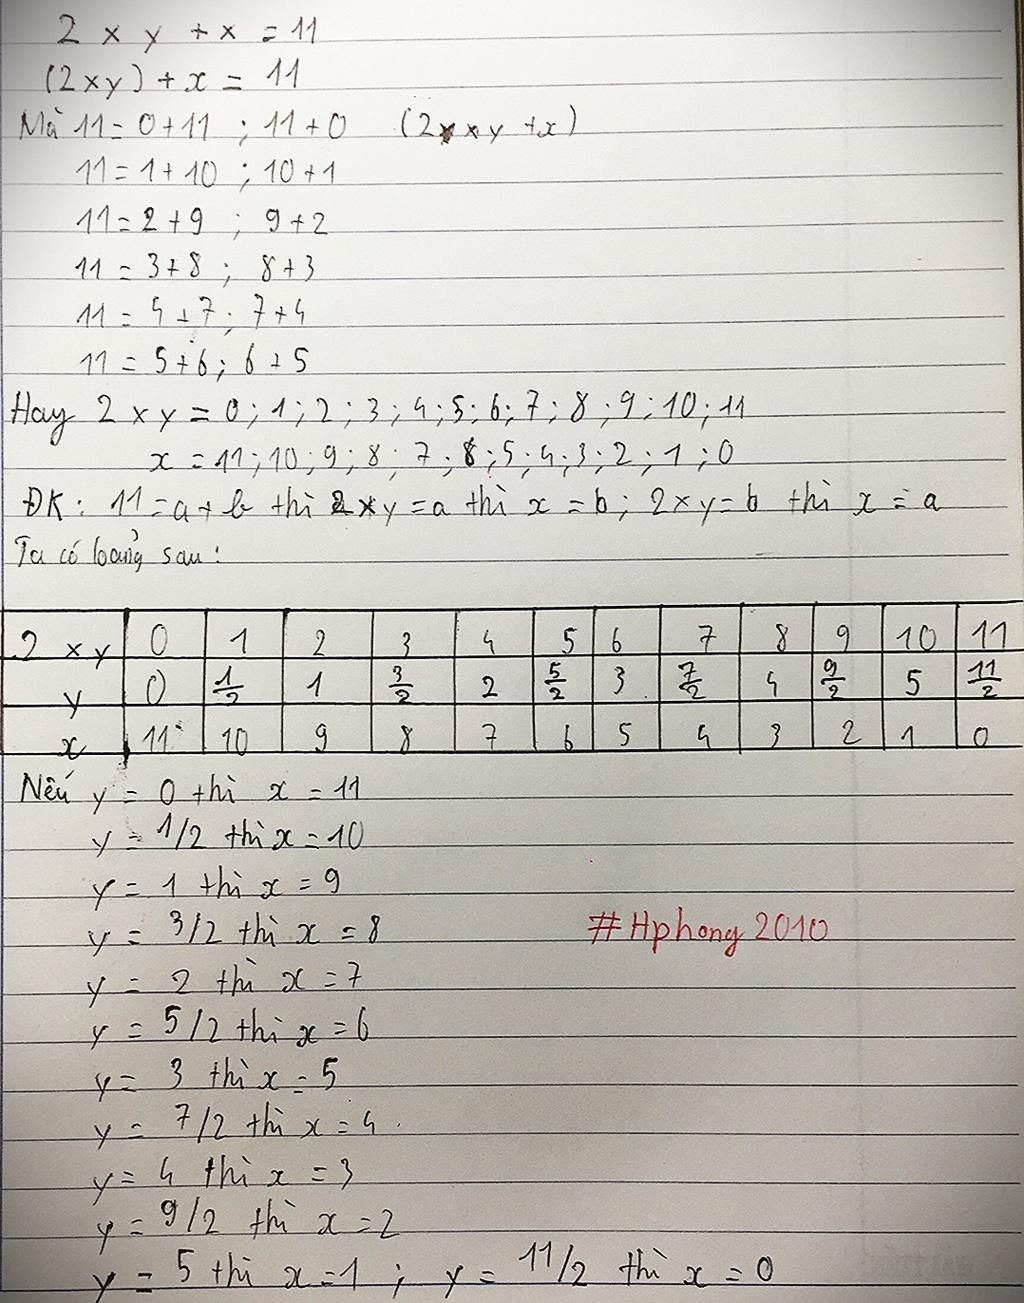 2 x y + x = 11
(2xy) + x = 11
Mà 11 = 0+11 ; 11+0 (2 x y + x)
11 = 1+10 ; 10+1
11 = 2+9 ; 9+2
11 = 3+8 ; 8+3
11 = 4+7 ; 7+4
11 = 5+6 ; 6+5
Hay 2 x y = 0 ; 1 ; 2 ; 3 ; 4 ; 5 ; 6 ; 7 ; 8 ; 9 ; 10 ; 11
x = 11 ; 10 ; 9 ; 8 ; 7 ; 6 ; 5 ; 4 ; 3 ; 2 ; 1 ; 0
ĐK : 11 = a + b thì 2xy = a thì x = b ; 2xy = b thì x = a
Ta có bảng sau :
2 x y 0 1 2 3 4 5 6 7 8 9 10 11
y 0 1/2 1 3/2 2 5/2 3 7/2 4 9/2 5 11/2
x 11 10 9 8 7 6 5 4 3 2 1 0
Nếu y = 0 thì x = 11
y = 1/2 thì x = 10
y = 1 thì x = 9
y = 3/2 thì x = 8
#Hphong2010
y = 2 thì x = 7
y = 5/2 thì x = 6
y = 3 thì x = 5
y = 7/2 thì x = 4
y = 4 thì x = 3
y = 9/2 thì x = 2
y = 5 thì x = 1 ; y = 11/2 thì x = 0